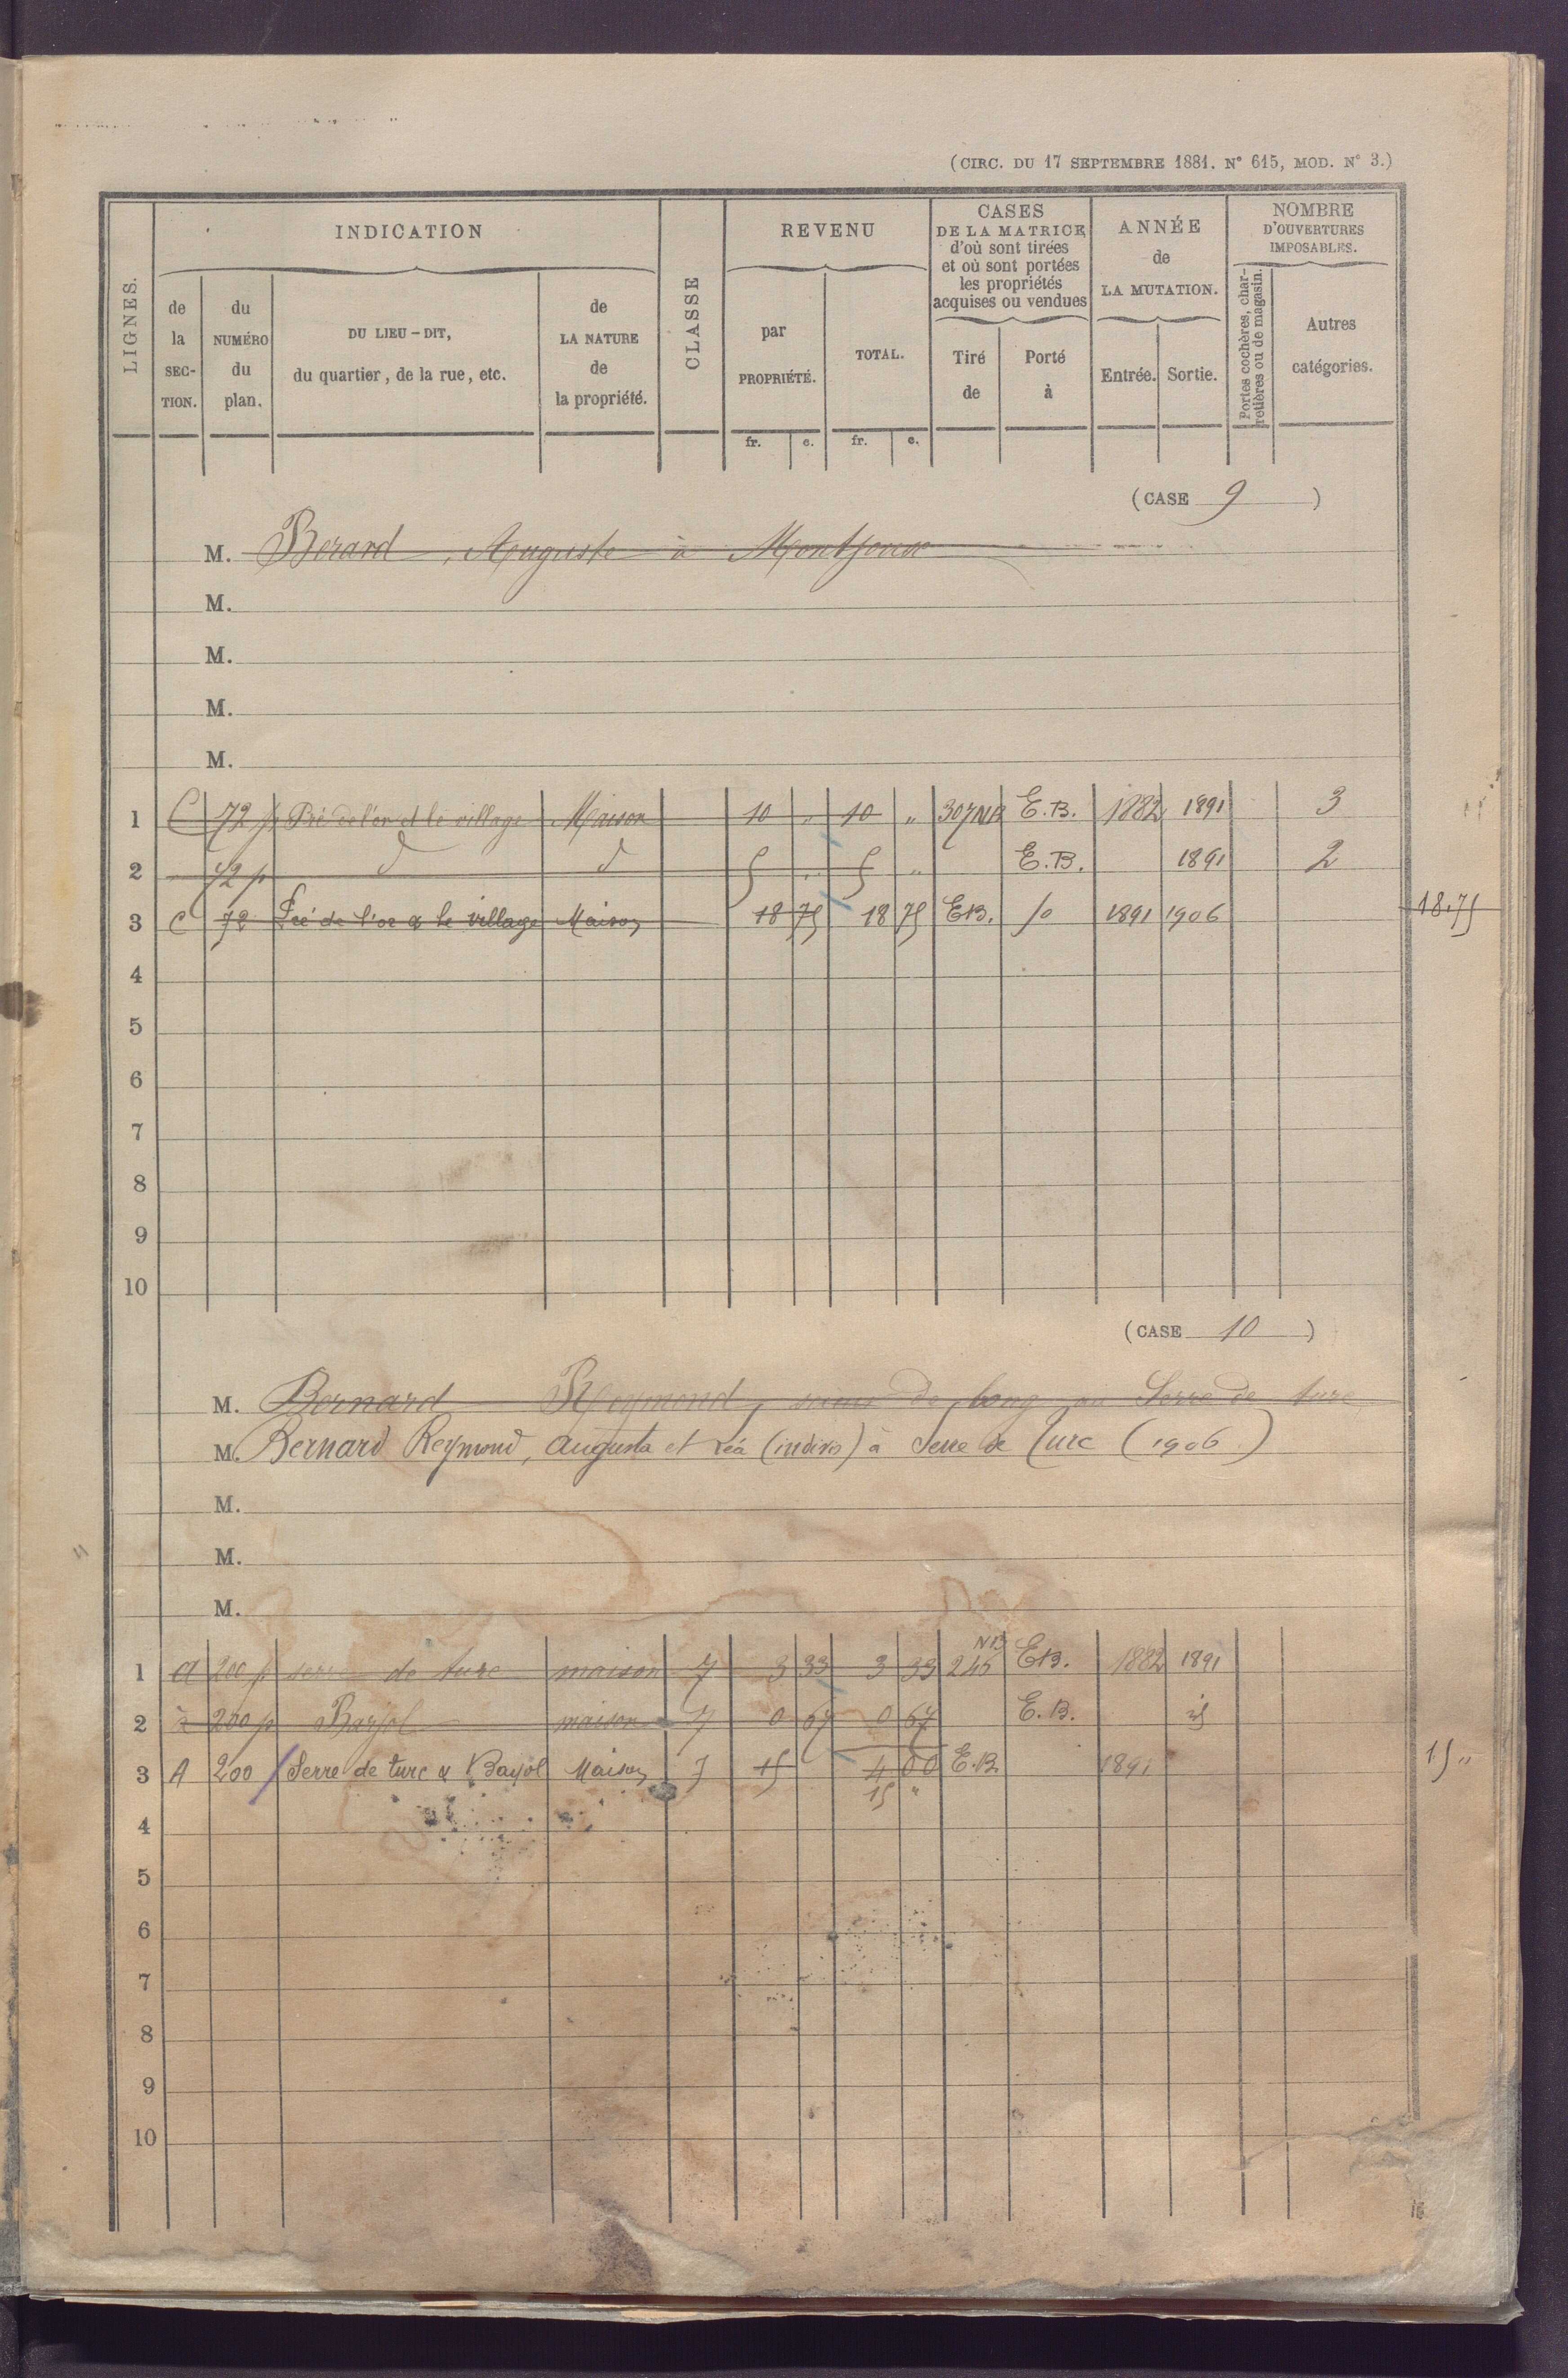 (CIRC. DU 17 SEPTEMBRE 1881. N° 615, MOD. N° 3.)
LIGNES.
INDICATION
de la SECTION.
du NUMÉRO du plan.
DU LIEU-DIT, du quartier, de la rue, etc.
de LA NATURE de la propriété.
CLASSE
REVENU
par PROPRIÉTÉ.
TOTAL.
fr. c. fr. c.
CASES DE LA MATRICE d'où sont tirées et où sont portées les propriétés acquises ou vendues
Tiré de
Porté à
ANNÉE de LA MUTATION.
Entrée. Sortie.
NOMBRE D'OUVERTURES IMPOSABLES.
Portes cochères, charretières ou de magasin.
Autres catégories.
(CASE 9)
M. Berard, Auguste à Montjoux
M.
M.
M.
M.
1 C 72 p Pré de l'or et le village Maison 10 " 10 " 307 NB E.B. 1882 1891 3
2 72 p d d 5 " 5 " E.B. 1891 2
3 C 72 Pré de l'or & le village Maison 18 75 18 75 E.B. 10 1891 1906 18.75
4
5
6
7
8
9
10
(CASE 10)
M. Bernard Reymond, de long au Serre de turc
M. Bernard Reymond, Augusta et Léa (indivis) à Serre de Turc (1906)
M.
M.
M.
1 A 200 p serre de turc maison 7 3 33 3 33 NB 245 E.B. 1882 1891
2 à 200 p Bayol maison 7 0 67 0 67 E.B. id
3 A 200 Serre de turc & Bayol Maison 7 15 4 00 E.B 1891 15 "
15 "
4
5
6
7
8
9
10